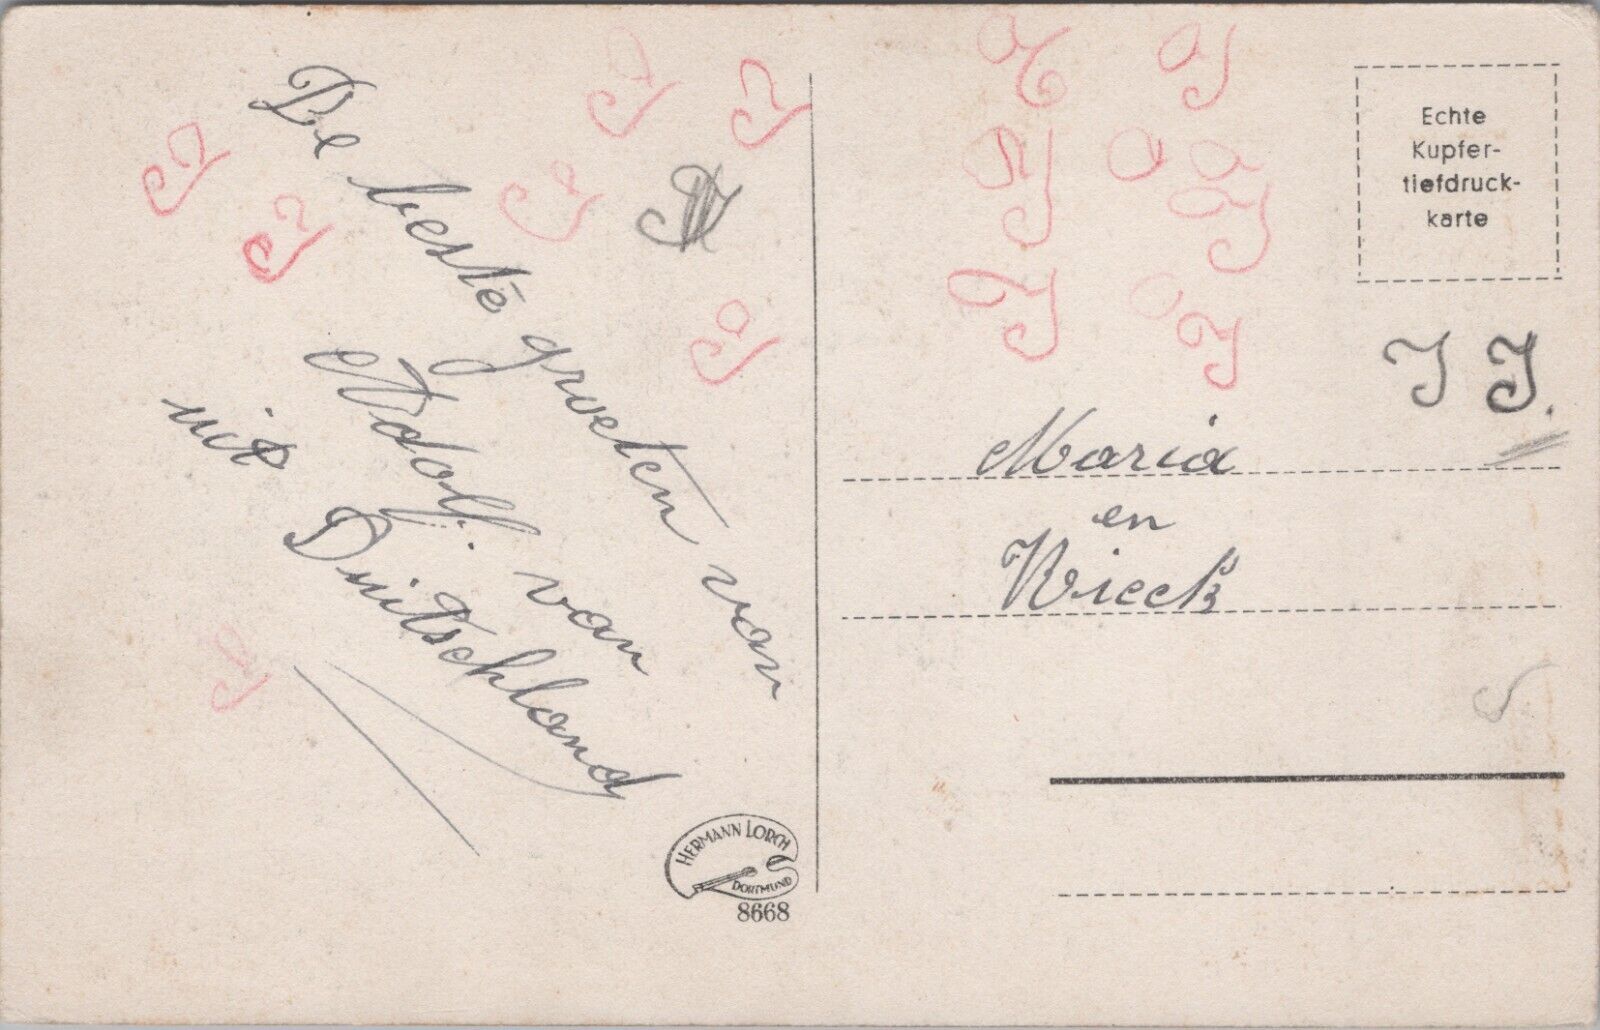 De beste groeten van
Adolf. van
uit Duitschland
Echte
Kupfer-
tiefdruck-
karte
J J.
Maria
en
Rieck
HERMANN LORCH
DORTMUND
8668